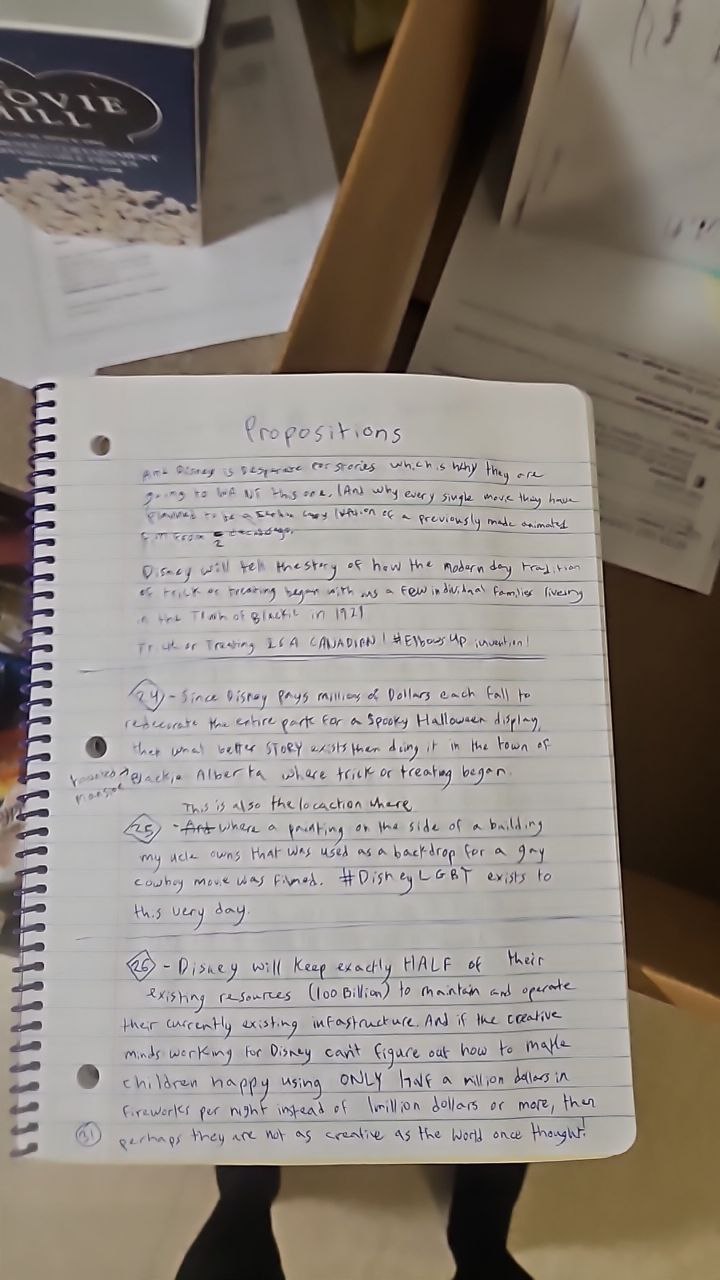 OVIE
ILL
Propositions
And Disney is Desperate for stories which is why they are
going to want this one. (And why every single movie they have
planned to be a version of a previously made animated
film from 2
Disney will tell the story of how the modern day tradition
of trick or treating began with us a few individual families living
in the Town of Blackie in 1921
Trick or Treating IS A CANADIAN! #ElbowsUp invention!
24 - Since Disney pays millions of Dollars each fall to
redecorate the entire park for a Spooky Halloween display,
then what better STORY exists then doing it in the town of
Blackie Alberta where trick or treating began.
This is also the locaction where
25 - And where a painting on the side of a building
my ucle owns that was used as a backdrop for a gay
cowboy movie was filmed. #DisneyLGBT exists to
this very day.
26 - Disney will keep exactly HALF of their
existing resources (100 Billion) to maintain and operate
their currently existing infastructure. And if the creative
minds working for Disney can't figure out how to make
children happy using ONLY half a million dollars in
fireworks per night instead of 1 million dollars or more, then
perhaps they are not as creative as the world once thought!
31